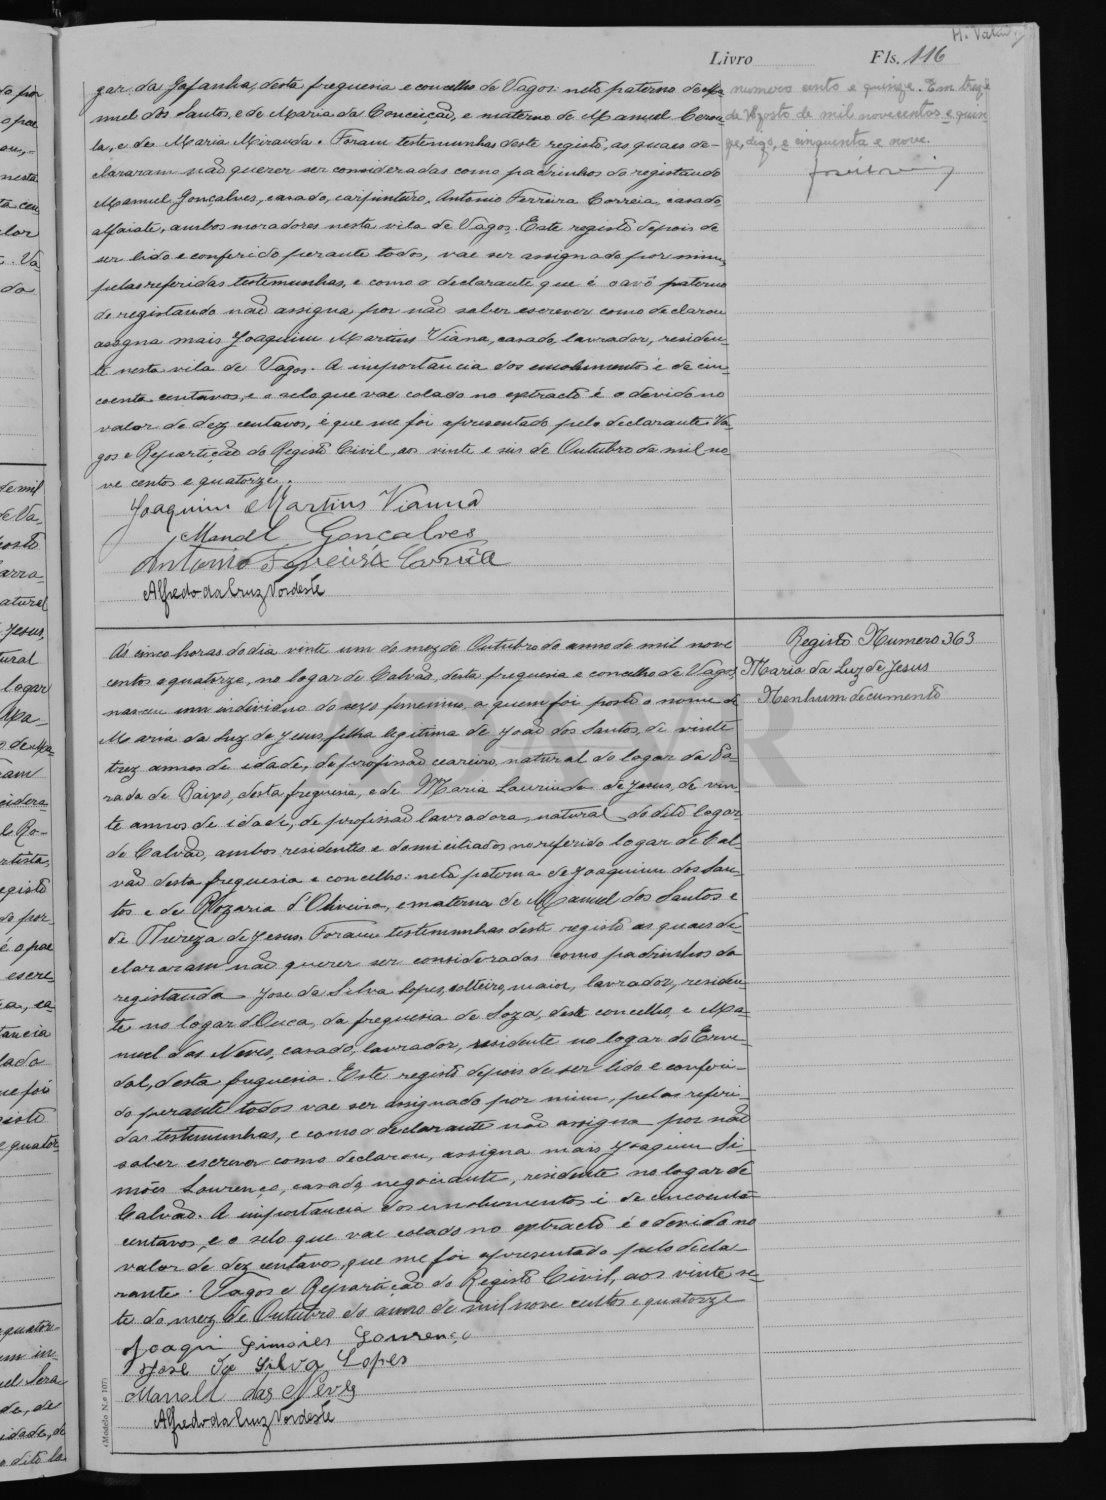 Livro Fls. 116
gar da Gafanha, desta freguesia e concelho de Vagos: neto paterno de Ma-
nuel dos Santos, e de Maria da Conceição, e materno de Manuel
la, e de Maria Miranda. Foram testemunhas deste registo, as quaes de-
clararam não querer ser consideradas como padrinhos do registando
Manuel Gonçalves, casado, carpinteiro, Antonio Ferreira Correia, casado
alfaiate, ambos moradores nesta vila de Vagos. Este registo depois de
ser lido e conferido perante todos, vae ser assignado por mim,
pelas referidas testemunhas, e como o declarante que é o avô paterno
do registando não assigna por não saber escrever como declarou
assigna mais Joaquim Martins Viana, casado, lavrador, residen-
te nesta vila de Vagos. A importancia dos emolumentos é de cin-
coenta centavos, e o selo que vae colado no extracto é o devido no
valor de dez centavos, e que me foi apresentado pelo declarante. Va-
gos e Repartição do Registo Civil, aos vinte e seis de Outubro de mil no-
ve centos e quatorze.
Joaquim Martins Vianna
Manoel Gonçalves
Antonio Ferreira Correia
Alfredo da Cruz Nordeste
numero cento e quinze. Em treze
de Agosto de mil novecentos e quin-
ze, digo, e cinquenta e nove.
Ás cinco horas do dia vinte um do mez de Outubro do anno de mil nove
centos e quatorze, no logar de Calvão, desta freguesia e concelho de Vagos,
nasceu um individuo do sexo feminino, a quem foi posto o nome de
Maria da Luz de Jesus, filha legitima de João dos Santos, de vinte
trez annos de idade, de profissão ceareiro, natural do logar da Pa-
rada de Baixo, desta freguesia, e de Maria Laurinda de Jesus, de vin-
te annos de idade, de profissão lavradora, natural do dito logar
de Calvão, ambos residentes e domiciliados no referido logar de Cal
vão desta freguesia e concelho: neta paterna de Joaquim dos San-
tos e de Rozaria d'Oliveira, e materna de Manuel dos Santos e
de Thereza de Jesus. Foram testemunhas deste registo as quaes de-
clararam não querer ser consideradas como padrinhos da
registanda Jose da Silva Lopes, solteiro, maior, lavrador, residen-
te no logar d'Ouca, da freguesia de Soza, deste concelho, e Ma-
nuel das Neves, casado, lavrador, residente no logar do Erve-
dal, desta freguesia. Este registo depois de ser lido e conferi-
do perante todos vae ser assignado por mim, pelas referi-
das testemunhas, e como o declarante não assigna por não
saber escrever como declarou, assigna mais Joaquim Si-
mões Lourenço, casado, negociante, residente no logar de
Calvão. A importancia dos emolumentos é de cincoenta
centavos, e o selo que vae colado no extracto é o devido no
valor de dez centavos, que me foi apresentado pelo decla-
rante. Vagos e Repartição do Registo Civil, aos vinte se-
te do mez de Outubro do anno de mil nove centos e quatorze
Joaqui Simoies Lourenço
Jose da Silva Lopes
Manoel das Neves
Alfredo da Cruz Nordeste
Registo Numero 363
Maria da Luz de Jesus
Nenhum documento
(Modelo N.º 107)
ADAVR